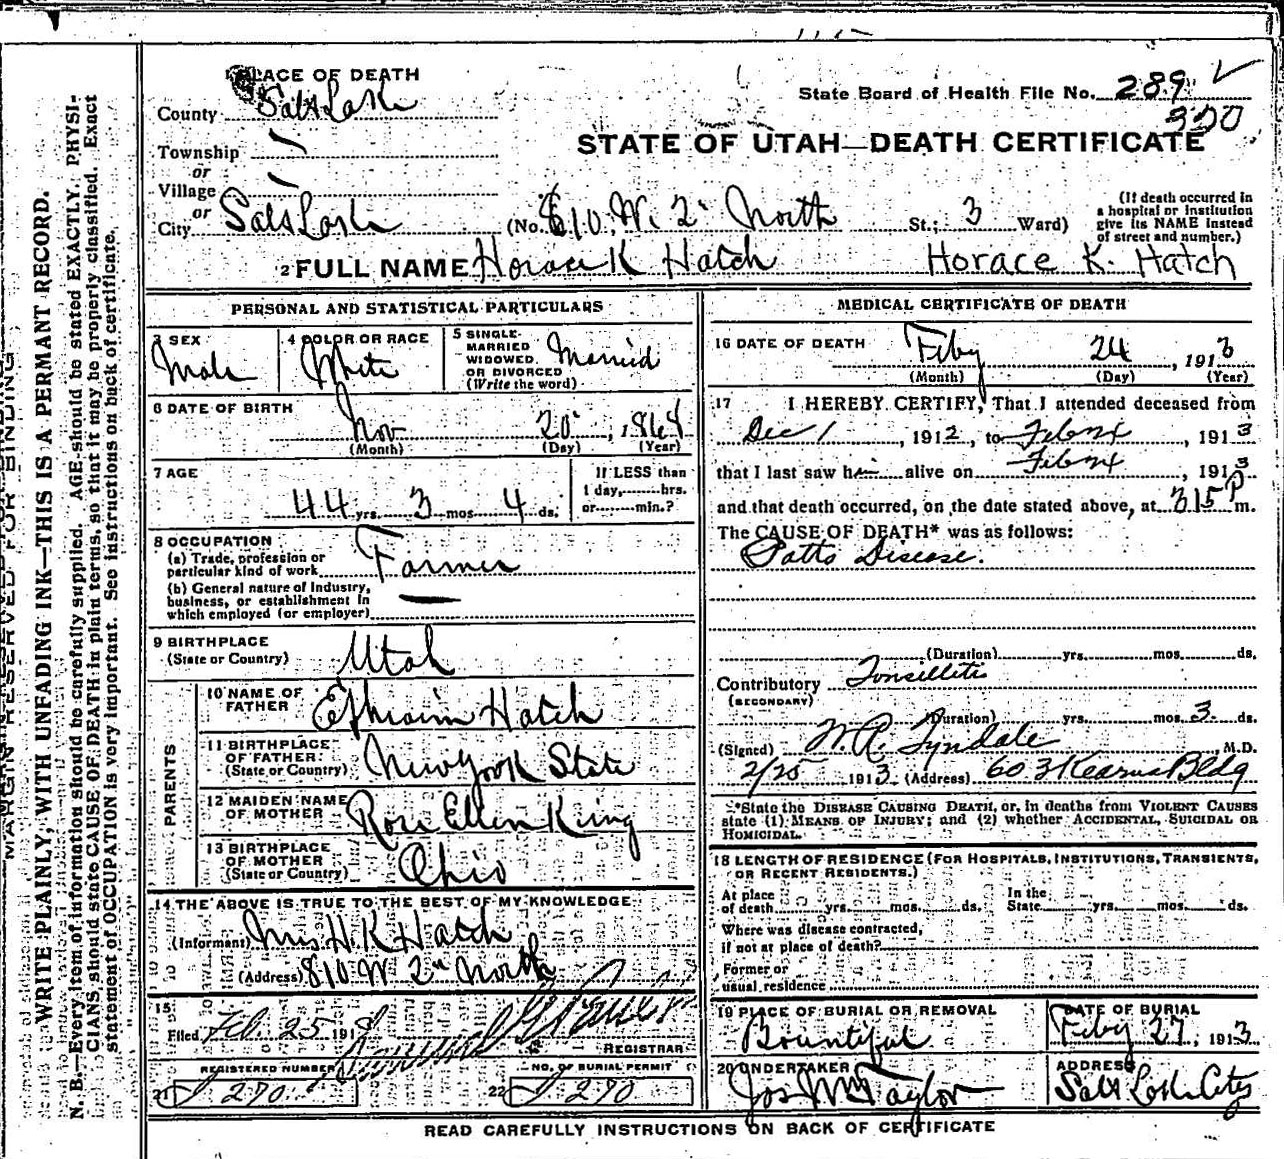 PLACE OF DEATH
County Salt Lake
State Board of Health File No. 289
350
STATE OF UTAH—DEATH CERTIFICATE
Township
or
Village
or
City Salt Lake (No. 810 W. 2" North St.; 3 Ward) (If death occurred in a hospital or institution give its NAME instead of street and number.)
2 FULL NAME Horace K Hatch Horace K. Hatch
PERSONAL AND STATISTICAL PARTICULARS
3 SEX Male
4 COLOR OR RACE White
5 SINGLE MARRIED WIDOWED OR DIVORCED (Write the word) Married
6 DATE OF BIRTH Nov 20, 1868
(Month) (Day) (Year)
7 AGE 44 yrs. 3 mos 4 ds.
If LESS than
1 day, hrs.
or min.?
8 OCCUPATION
(a) Trade, profession or
particular kind of work Farmer
(b) General nature of Industry,
business, or establishment in
which employed (or employer)
9 BIRTHPLACE
(State or Country) Utah
PARENTS
10 NAME OF
FATHER Ephraim Hatch
11 BIRTHPLACE
OF FATHER
(State or Country) New York State
12 MAIDEN NAME
OF MOTHER Rosa Ellen King
13 BIRTHPLACE
OF MOTHER
(State or Country) Ohio
14 THE ABOVE IS TRUE TO THE BEST OF MY KNOWLEDGE
(Informant) Mrs H. K Hatch
(Address) 810 W 2" North
15
Filed Feb. 25 191
REGISTRAR
REGISTERED NUMBER
21 270
NO. OF BURIAL PERMIT
22 270
MEDICAL CERTIFICATE OF DEATH
16 DATE OF DEATH Feby 24, 1913
(Month) (Day) (Year)
17 I HEREBY CERTIFY, That I attended deceased from
Dec 1, 1912, to Feb 24, 1913
that I last saw him alive on Feb 24, 1913
and that death occurred, on the date stated above, at 315 P m.
The CAUSE OF DEATH* was as follows:
Potts Disease.
(Duration) yrs. mos. ds.
Contributory Tonsillitis
(SECONDARY)
(Duration) yrs. mos. 3 ds.
(Signed) W. R. Tyndale, M.D.
2/25 1913 (Address) 603 Kearns Bldg
*State the DISEASE CAUSING DEATH, or, in deaths from VIOLENT CAUSES
state (1) MEANS OF INJURY; and (2) whether ACCIDENTAL, SUICIDAL OR
HOMICIDAL.
18 LENGTH OF RESIDENCE (FOR HOSPITALS, INSTITUTIONS, TRANSIENTS,
OR RECENT RESIDENTS.)
At place
of death yrs. mos. ds.
In the
State yrs. mos. ds.
Where was disease contracted,
if not at place of death?
Former or
usual residence
19 PLACE OF BURIAL OR REMOVAL
Bountiful
DATE OF BURIAL
Feby 27, 1913
20 UNDERTAKER
Jos Wm Taylor
ADDRESS
Salt Lake City
READ CAREFULLY INSTRUCTIONS ON BACK OF CERTIFICATE
MARGIN RESERVED FOR BINDING
WRITE PLAINLY, WITH UNFADING INK—THIS IS A PERMANT RECORD.
N. B.—Every item of information should be carefully supplied. AGE should be stated EXACTLY. PHYSI-
CIANS should state CAUSE OF DEATH in plain terms, so that it may be properly classified. Exact
statement of OCCUPATION is very important. See instructions on back of certificate.